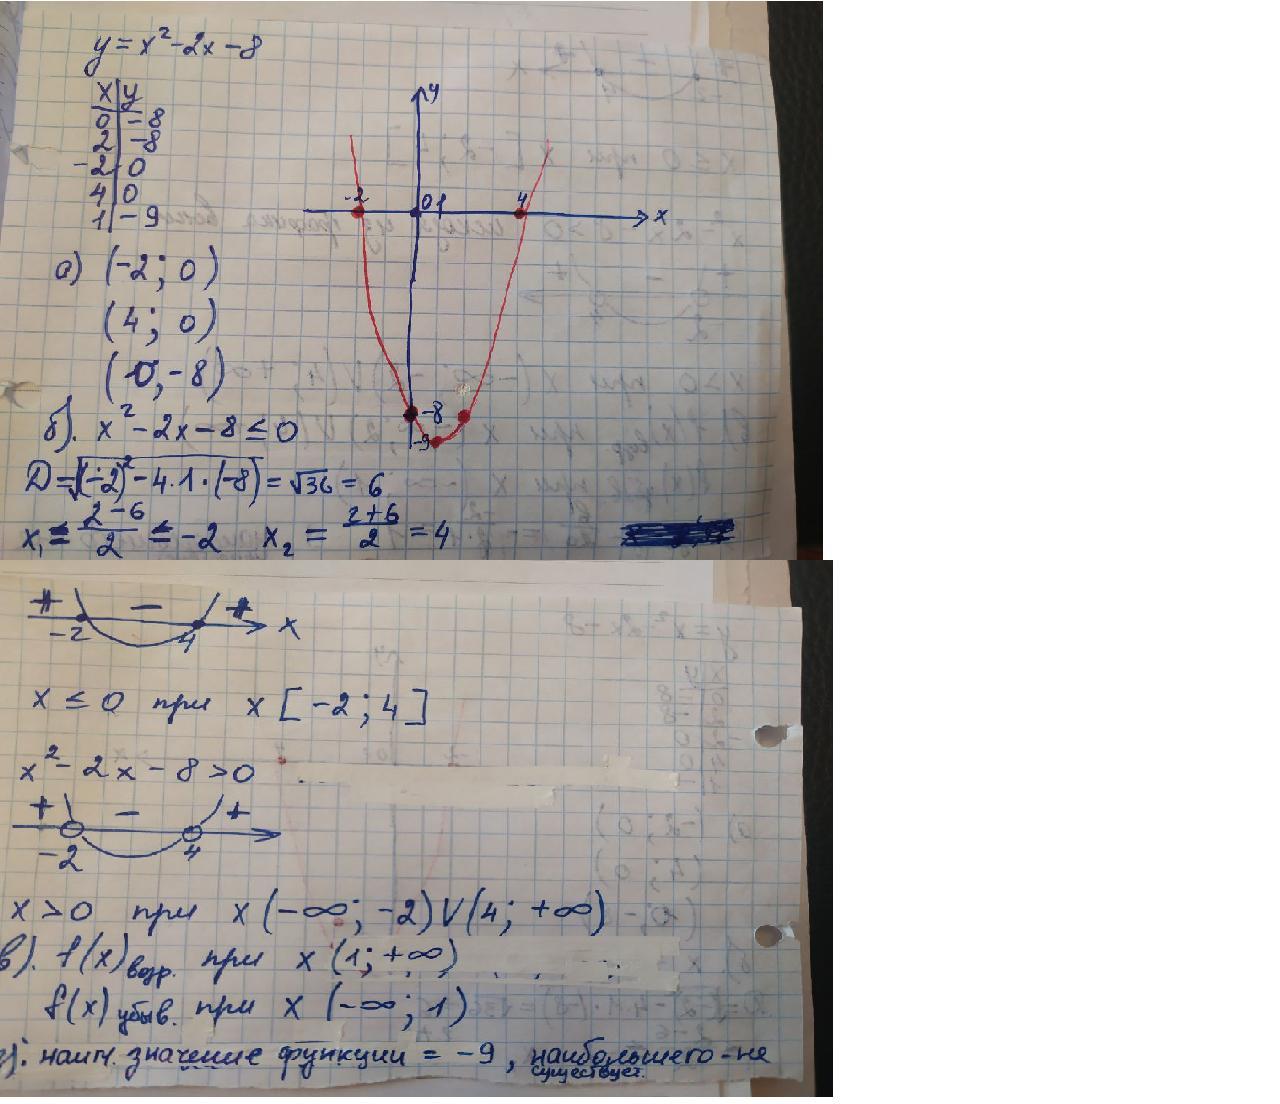 y = x² - 2x - 8
x | y
0 | -8
2 | -8
-2 | 0
4 | 0
1 | -9
y
-2
0 1
4
x
-8
-9
а) (-2; 0)
(4; 0)
(0, -8)
б). x² - 2x - 8 ≤ 0
D = √(-2)² - 4·1·(-8) = √36 = 6
x₁ = (2-6)/2 = -2 x₂ = (2+6)/2 = 4
+ - +
-2 4 x
x ≤ 0 при x [-2; 4]
x² - 2x - 8 > 0
+ - +
-2 4
x > 0 при x (-∞; -2) V (4; +∞)
в). f(x) возр. при x (1; +∞)
f(x) убыв. при x (-∞; 1)
г): наим. значение функции = -9, наибольшего - не
существует.